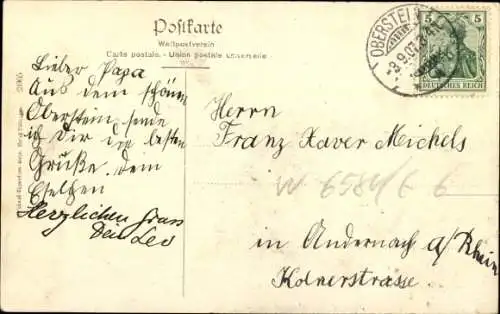 Postkarte
Weltpostverein
Carte postale. - Union postale universelle
Lieber Papa
Aus dem schönen
Oberstein sende
ich Dir die besten
Grüße. Dein
Eselchen
Herzlichen Gruss
Dein Leo
Herrn
Franz Xaver Michels
in Andernach a/Rhein
Kölnerstrasse.
OBERSTEIN
3.9.07
5 5
DEUTSCHES REICH